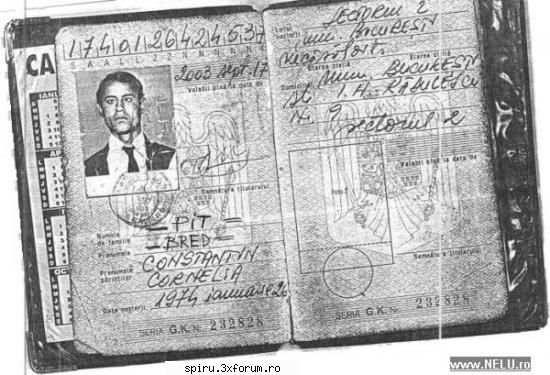 1740126424537
S A A L L Z Z N N N N N
2003 sept. 17
Valabil pînă la data de
Semnătura titularului
Numele
de familie
= PIT =
Prenumele
- BRED -
Prenumele
părinților
CONSTANTIN
CORNELIA
Data nașterii
1974 ianuarie 26
2
SERIA G.K. Nr. 232828
CA
Locul
nașterii
mun. BUCUREȘTI
Starea civilă
Starea civilă
Domiciliul
Mun. BUCUREȘTI
Str. I. H. RĂDULESCU
Nr. 9
sectorul 2
Valabil pînă la data de
Semnătura titularului
SERIA G.K. Nr. 232828
spiru.3xforum.ro
www.NELU.ro